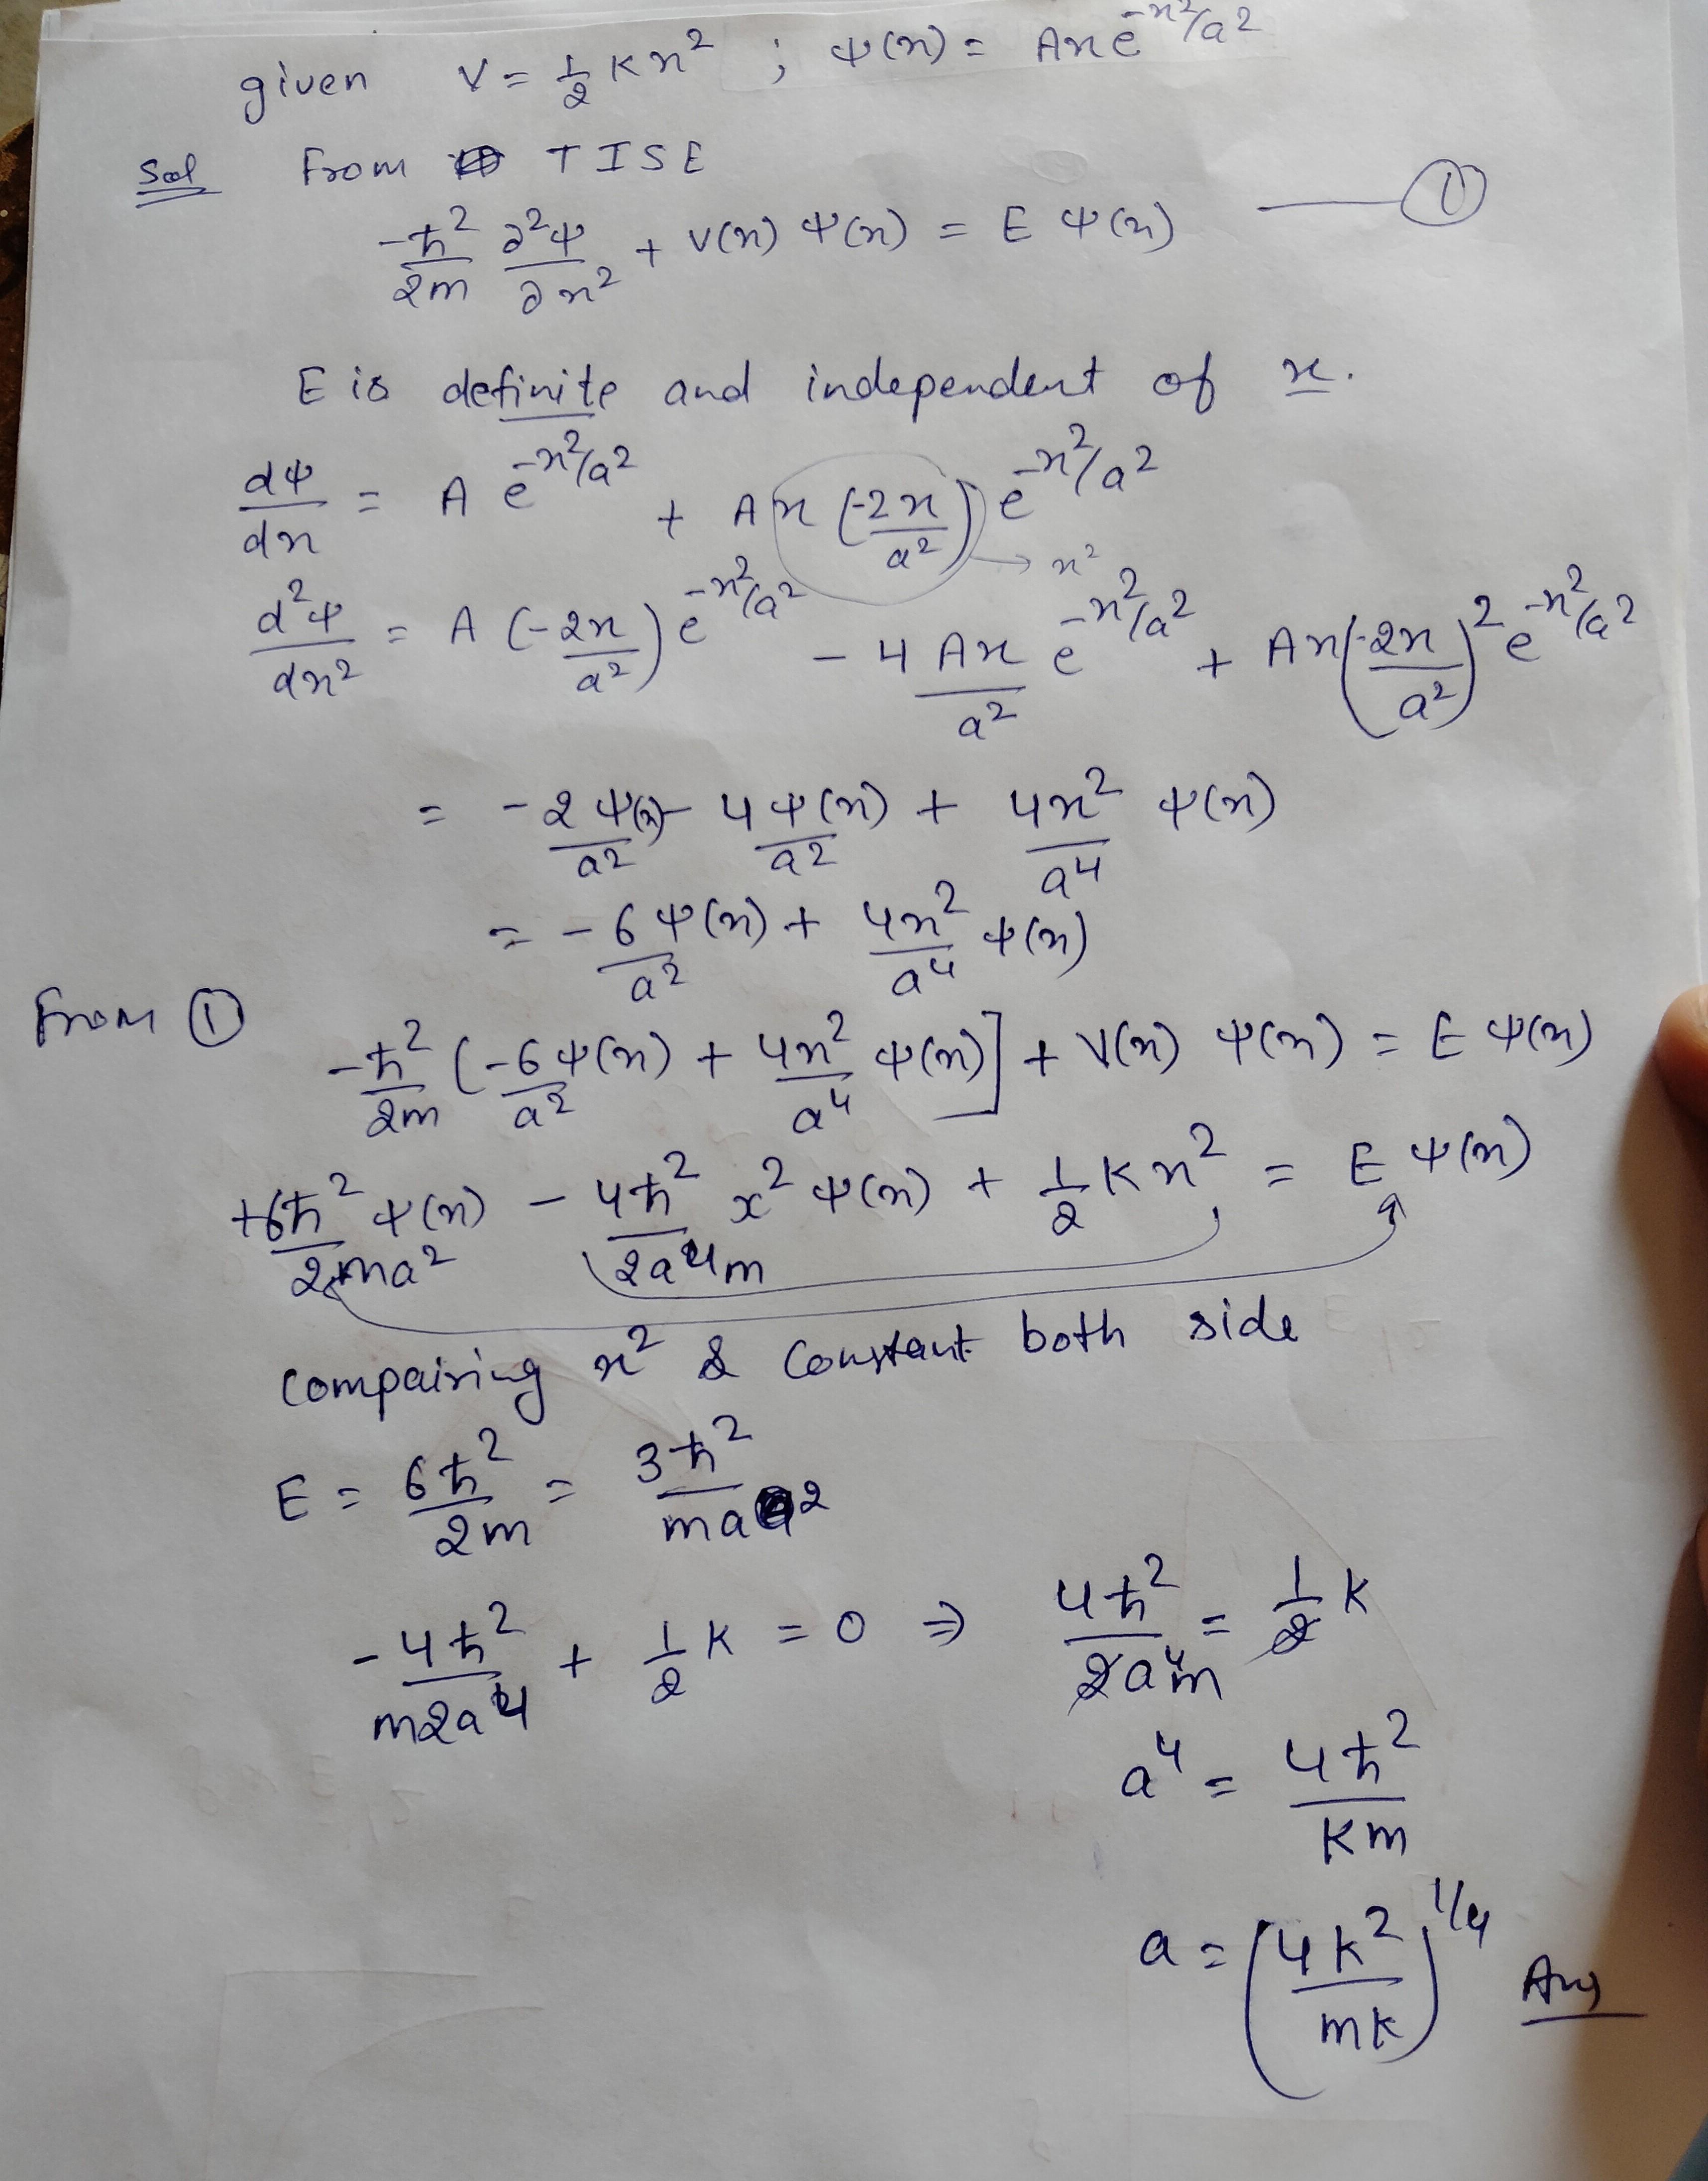 given V = 1/2 Kx² ; ψ(x) = Axe^(-x²/a²)
Sol From TISE
-ħ²/2m ∂²ψ/∂x² + V(x) ψ(x) = E ψ(x) — ①
E is definite and independent of x.
dψ/dx = A e^(-x²/a²) + Ax (-2x/a²) e^(-x²/a²)
→ x²
d²ψ/dx² = A (-2x/a²) e^(-x²/a²) - 4Ax/a² e^(-x²/a²) + Ax(-2x/a²)² e^(-x²/a²)
= -2ψ(x)/a² - 4ψ(x)/a² + 4x²/a⁴ ψ(x)
= -6ψ(x)/a² + 4x²/a⁴ ψ(x)
From ① -ħ²/2m (-6/a² ψ(x) + 4x²/a⁴ ψ(x)] + V(x) ψ(x) = E ψ(x)
+6ħ²/2ma² ψ(x) - 4ħ²/2a⁴m x² ψ(x) + 1/2 Kx² = E ψ(x)
compairing x² & Constant both side
E = 6ħ²/2m = 3ħ²/ma²
-4ħ²/m2a⁴ + 1/2 K = 0 ⇒ 4ħ²/2a⁴m = 1/2 K
a⁴ = 4ħ²/Km
a = (4k²/mk)^1/4 Ans